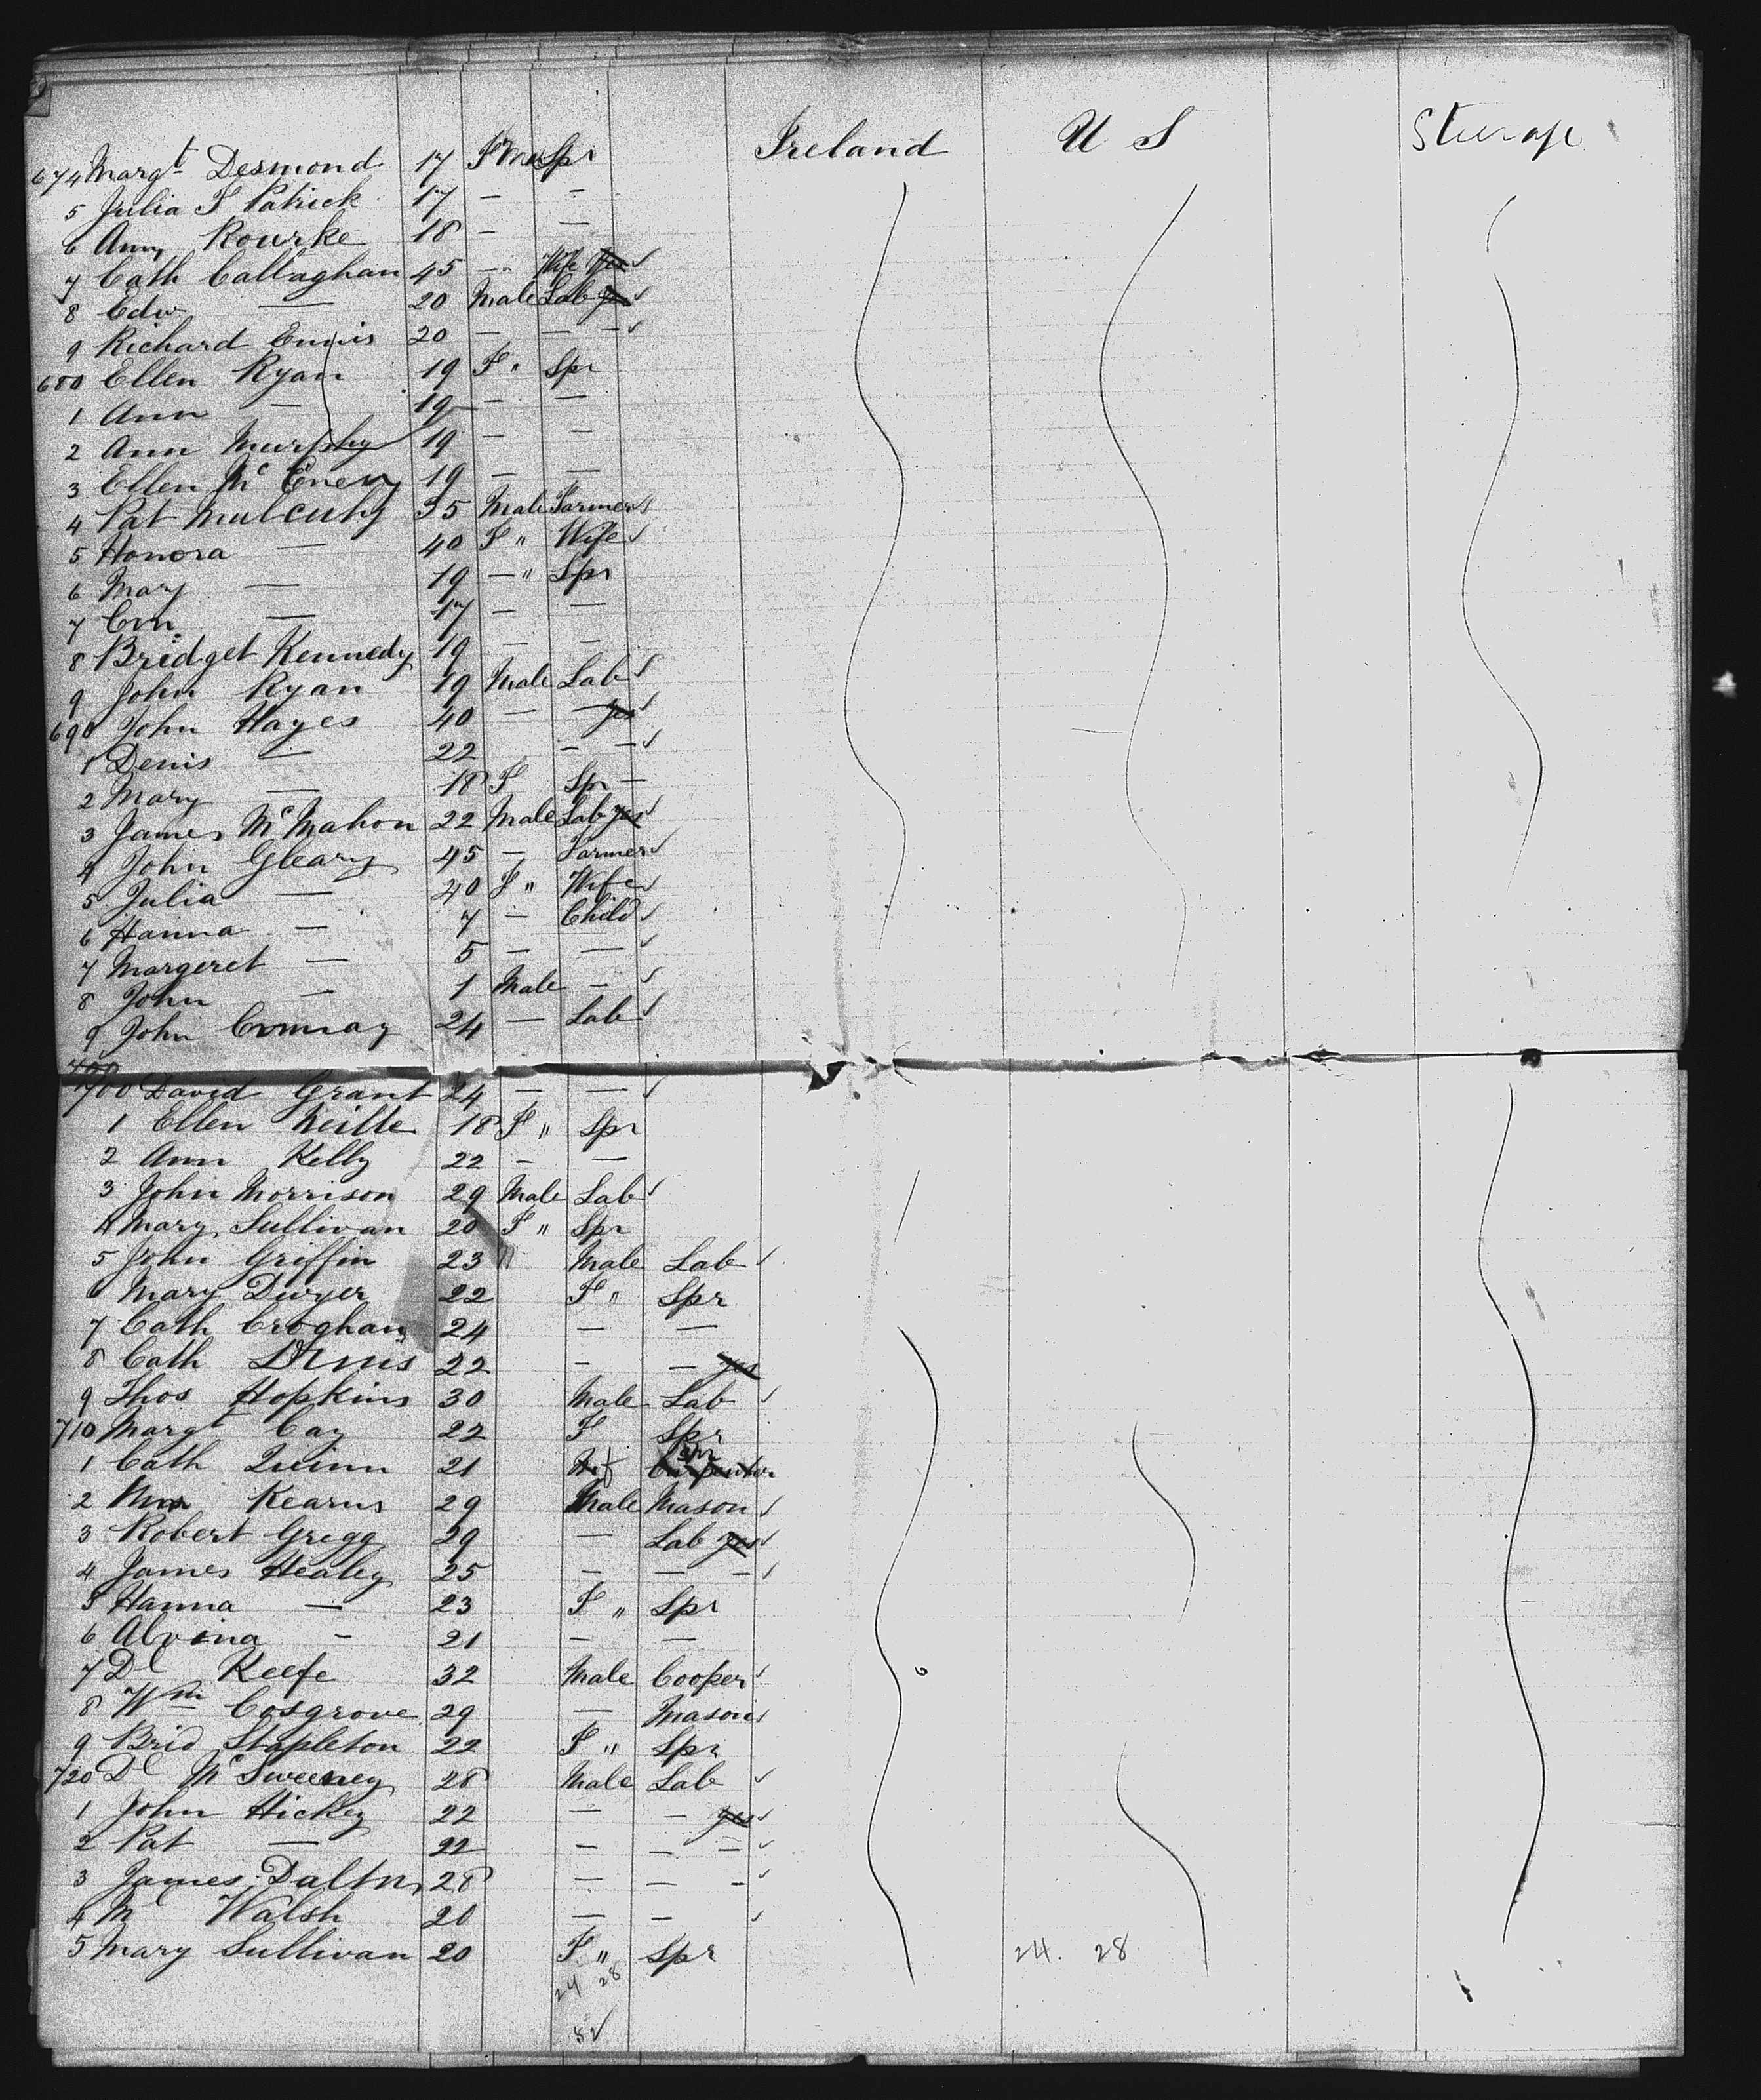 Ireland U S Steerage
674 Margt Desmond 17 F Spr
5 Julia F Patrick 17 — —
6 Ann Rourke 18 — —
7 Cath Callaghan 45 — Wife yes ✓
8 Edw — 20 Male Lab yes ✓
9 Richard Ennis 20 — — — ✓
680 Ellen Ryan 19 F " Spr
1 Ann — 19 — —
2 Ann Murphy 19 — —
3 Ellen Mc Eneny 19 — —
4 Pat Mulcuhy 35 Male Farmer ✓
5 Honora — 40 F " Wife ✓
6 Mary — 19 — " Spr
7 — 17 — —
8 Bridget Kennedy 19 — —
9 John Ryan 19 Male Lab ✓
690 John Hayes 40 — — yes ✓
1 Denis — 22 — — ✓
2 Mary — 18 F Spr —
3 James Mc Mahon 22 Male Lab yes ✓
4 John Gleary 45 — Farmer ✓
5 Julia — 40 F " Wife ✓
6 Hanna — 7 — Child ✓
7 Margeret — 5 — — ✓
8 John — 1 Male — ✓
9 John 24 — Lab ✓
700 David Grant 24 — — ✓
1 Ellen 18 F " Spr
2 Ann Kelly 22 — —
3 John Morrison 29 Male Lab ✓
4 Mary Sullivan 20 F " Spr
5 John Griffin 23 " Male Lab ✓
6 Mary Dwyer 22 F " Spr
7 Cath Croghan 24 — —
8 Cath 22 — — yes
9 Thos Hopkins 30 Male Lab ✓
710 Margt Cay 22 F Spr
1 Cath Quinn 21 F Spr Carpenter
2 Kearns 29 Male Mason ✓
3 Robert Gregg 29 — Lab yes ✓
4 James Healey 25 — — — ✓
5 Hanna — 23 F " Spr
6 Alvina — 21 — —
7 Dl Keefe 32 Male Cooper ✓
8 Wm Cosgrove 29 — Mason ✓
9 Brid Stapleton 22 F " Spr
720 Dl Mc Sweeney 28 Male Lab ✓
1 John Hickey 22 — — yes ✓
2 Pat — 22 — — — ✓
3 James Dalton 28 — — — ✓
4 Ml Walsh 20 — — ✓
5 Mary Sullivan 20 F " Spr 24. 28
24 28
52